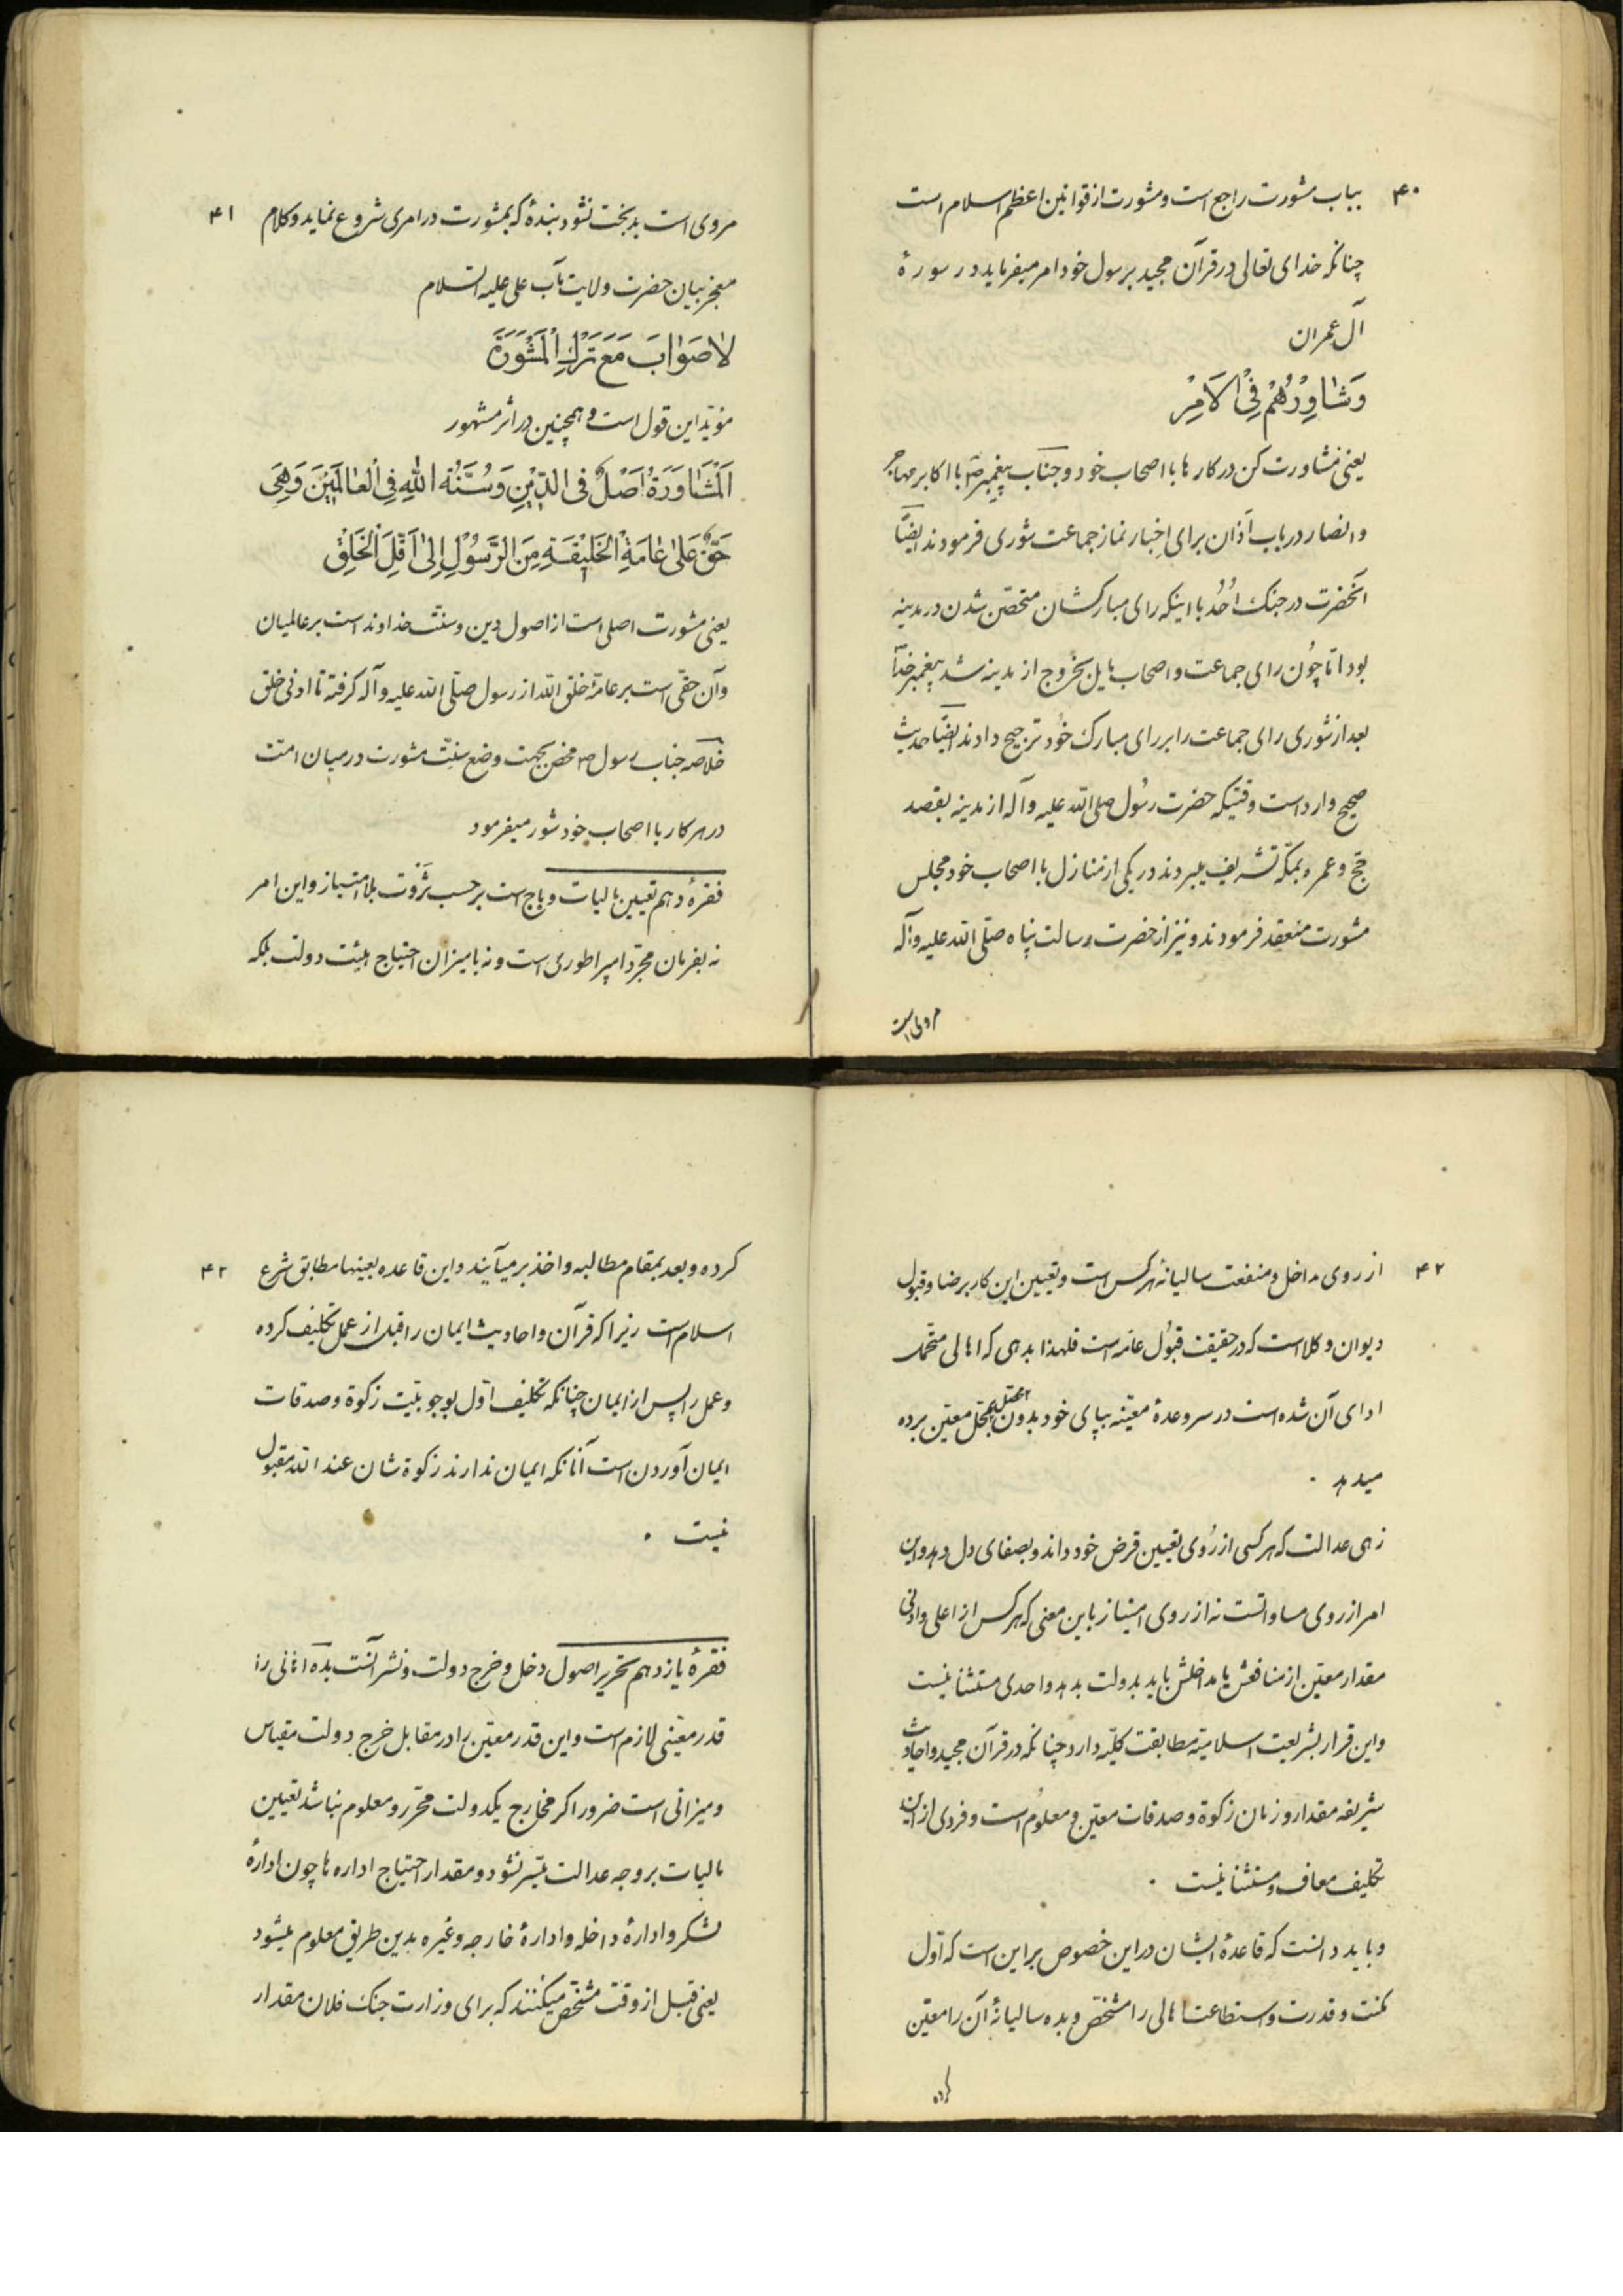 ۴۰
بباب مشورت راجع است و مشورت از قوانین اعظم اسلام است
چنانکه خدای تعالی در قرآن مجید برسول خود امر میفرماید در سورهٔ
آل عمران
وَشٰاوِرْهُمْ فِی الْاَمْرِ
یعنی مشاورت کن در کارها با اصحاب خود و جناب پیغمبر صَ با اکابر مهاجر
و انصار در باب اَذان برای اِخبار نماز جماعت شوری فرمودند ایضًا
آنحضرت در جنک اُحُد با اینکه رای مبارکشان متحصّن شدن در مدینه
بود امّا چون رای جماعت و اصحاب مایل بخروج از مدینه شد پیغمبر خدا
بعد از شوری رای جماعت را بر رای مبارک خود ترجیح دادند ایضًا حدیث
صحیح وارد است وقتیکه حضرت رسُول صلی الله علیه و آله از مدینه بقصد
حَجّ و عمره بمکّه تشریف میبردند در یکی از منازل با اصحاب خود مجلس
مشورت منعقد فرمودند و نیز از حضرت رسالت پناه صلّی الله علیه و آله
مروی است
۴۱
مروی است بدبخت نشود بندهٔ که بمشورت در امری شروع نماید و کلام
معجز بیان حضرت ولایت مآب علی علیه السّلام
لاٰصَوٰابَ مَعَ تَرْكِ الْمَشْوَرَةَ
مؤیّد این قول است و همچنین در اثر مشهور
اَلْمَشٰاوَرَةُ اَصْلٌ فی الدّیْنِ وَ سُنَّةُ اللهِ فِی الْعٰالَمَیْنَ وَهِیَ
حَقٌّ عَلیٰ عٰامَةِ الْخَلیْقَةِ مِنَ الرَّسُوْلِ اِلیٰ اَقَلِّ الْخَلِقْ
یعنی مشورت اصلی است از اصول دین و سنّت خداوند است بر عالمیان
و آن حقّی است بر عامّهٔ خلق الله از رسول صلّی الله علیه و آله کرفته تا ادنی خلق
خلاصه جناب رسول صَ محض بجهت وضع سنّت مشورت در میان امّت
در هر کار با اصحاب خود شور میفرمود
فقرهٔ دهم تعیین مالیات و باج است بر حسب ثَرْوَت بلا امتیاز و این امر
نه بفرمان مجرّد امپراطوری است و نه بامیزان احتیاج هیئت دولت بلکه
۴۲
از روی مداخل و منفعت سالیانهٔ هر کس است و تعیین این کار برضا و قبول
دیوان وکلا است که در حقیقت قبُول عامّه است فلهذا بدهی که اهالی متحمّل
ادای آن شده است در سر وعدهٔ معیّنه بپای خود بدون محصّل بمحلّ معیّن برده
میدهد ۰
زهی عدالت که هر کسی از رُوی تعیین قرض خود داند و بصفای دل دهد و این
امر از روی مساواتست نه از روی امتیاز باین معنی که هر کس از اعلی و ادنی
مقدار معیّن از منافعش یا مداخلش باید بدولت بدهد واحدی مستثنا نیست
و این قرار بشریعت اسلامیّه مطابقت کلّیّه دارد چنانکه در قرآن مجید و احادیث
شریفه مقدار و زمان زکوة و صدقات معیّن و معلوم است و فردی از این
تکلیف معاف و مستثنا نیست ۰
و باید دانست که قاعدهٔ ایشان در این خصوص بر این است که اوّل
مکنت و قدرت و استطاعت اهالی را مشخّص و بده سالیانهٔ آن را معیّن
کرده
۴۳
کرده و بعد بمقام مطالبه و اخذ بر میآیند و این قاعده بعینها مطابق شرع
اسلام است زیرا که قرآن و احادیث ایمان را قبل از عمل تکلیف کرده
و عمل را پس از ایمان چنانکه تکلیف اوّل بوجوبیّت زکوة و صدقات
ایمان آوردن است آنانکه ایمان ندارند زکوة شان عند الله مقبول
نیست ۰
فقرهٔ یازدهم تحریر اصول دخل و خرج دولت و نشر آنست بده اهالی را
قدر معیّنی لازم است و این قدر معیّن را در مقابل خرج دولت مقیاس
و میزانی است ضرور اکر مخارج یکدولت محرّر و معلوم نباشد تعیین
مالیات بر وجه عدالت میّسر نشود و مقدار احتیاج اداره ها چون ادارهٔ
لشکر و ادارهٔ داخله و ادارهٔ خارجه و غیره بدین طریق معلوم میشود
یعنی قبل از وقت مشخّص میکنند که برای وزارت جنک فلان مقدار